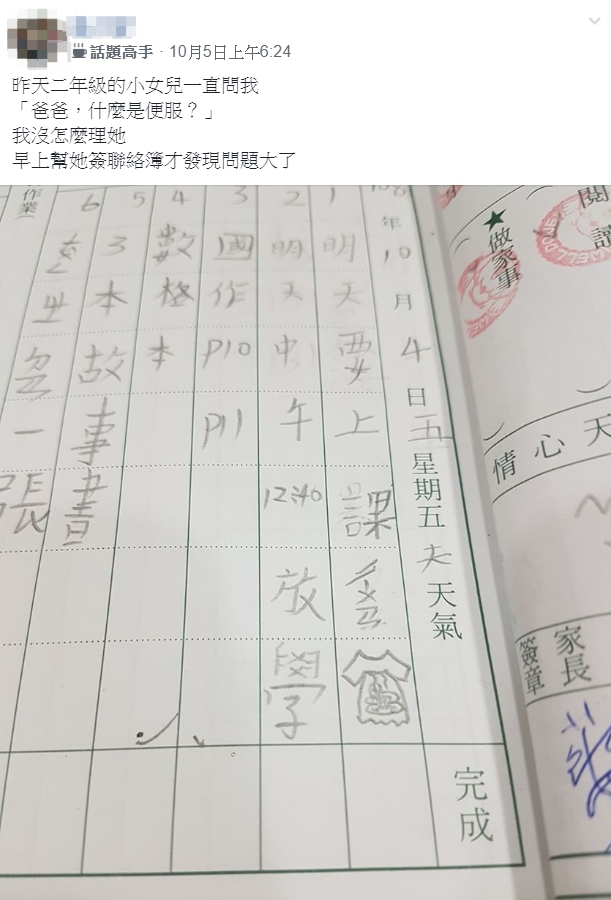 話題高手 · 10月5日上午6:24
昨天二年級的小女兒一直問我
「爸爸，什麼是便服？」
我沒怎麼理她
早上幫她簽聯絡簿才發現問題大了
閱讀
★做家事
天
心
情
家長
簽章
年10月4日五星期五天氣
1明天要上課
2明天中午12:40放學
3國作P10 P11
4數格本
5
63本故事書
一張
作業
完成